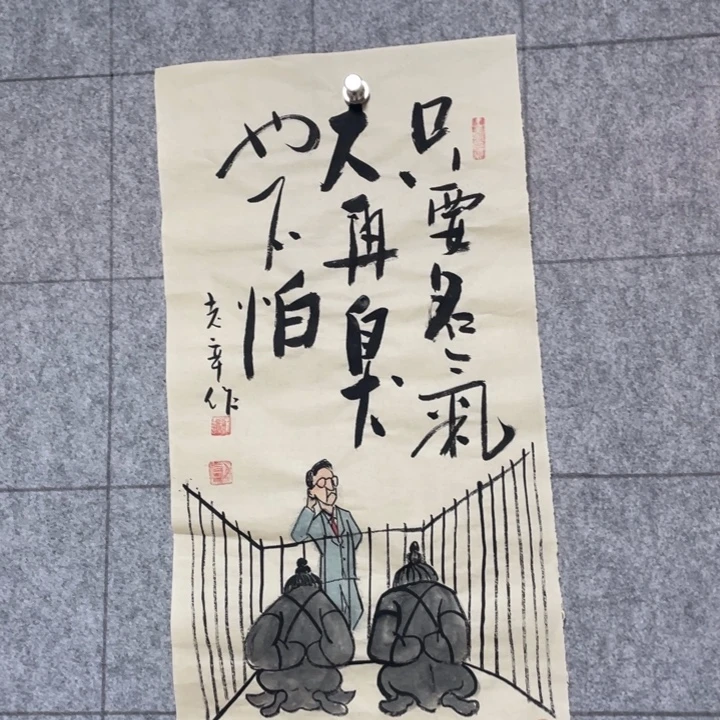 只要名氣
大再臭
也不怕
老辛作